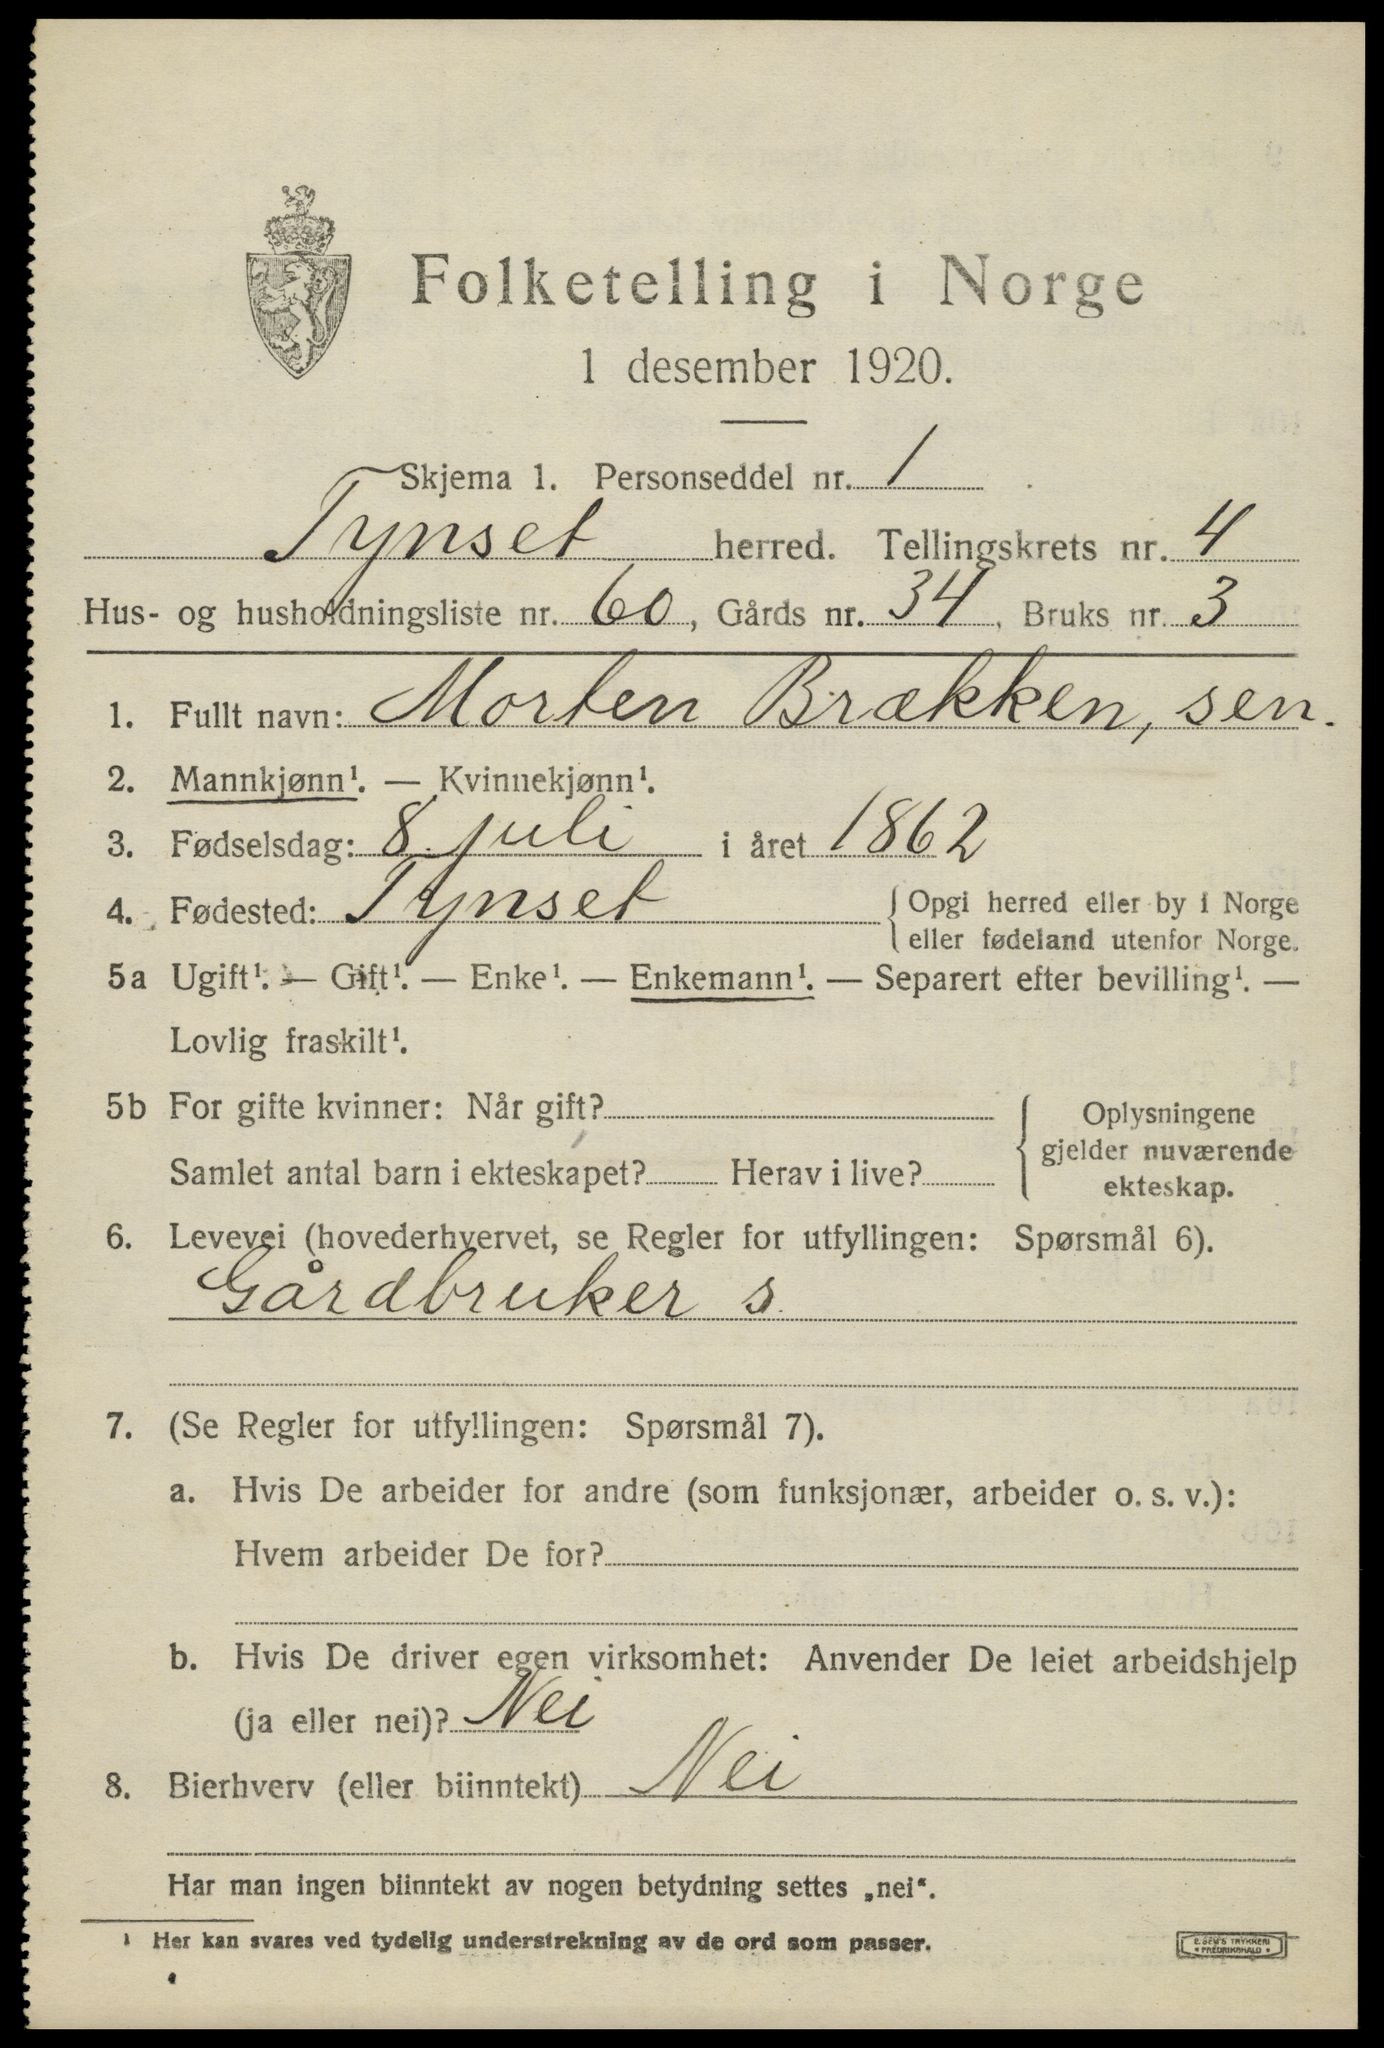 Folketelling i Norge
1 desember 1920.
Skjema 1. Personseddel nr. 1
Tynset herred. Tellingskrets nr. 4
Hus- og husholdningsliste nr. 60, Gårds nr. 34, Bruks nr. 3
1. Fullt navn: Morten Brækken, sen.
2. Mannkjønn¹. — Kvinnekjønn¹.
3. Fødselsdag: 8 juli i året 1862
4. Fødested: Tynset {Opgi herred eller by i Norge
eller fødeland utenfor Norge.
5a Ugift¹. — Gift¹. — Enke¹. — Enkemann¹. — Separert efter bevilling¹. —
Lovlig fraskilt¹.
5b For gifte kvinner: Når gift?
Samlet antal barn i ekteskapet? Herav i live?
{ Oplysningene
gjelder nuværende
ekteskap.
6. Levevei (hovederhvervet, se Regler for utfyllingen: Spørsmål 6).
Gårdbruker s.
7. (Se Regler for utfyllingen: Spørsmål 7).
a. Hvis De arbeider for andre (som funksjonær, arbeider o. s. v.):
Hvem arbeider De for?
b. Hvis De driver egen virksomhet: Anvender De leiet arbeidshjelp
(ja eller nei)? Nei
8. Bierhverv (eller biinntekt) Nei
Har man ingen biinntekt av nogen betydning settes „nei“.
¹ Her kan svares ved tydelig understrekning av de ord som passer.
E. SEM'S TRYKKERI
• FREDRIKSHALD •